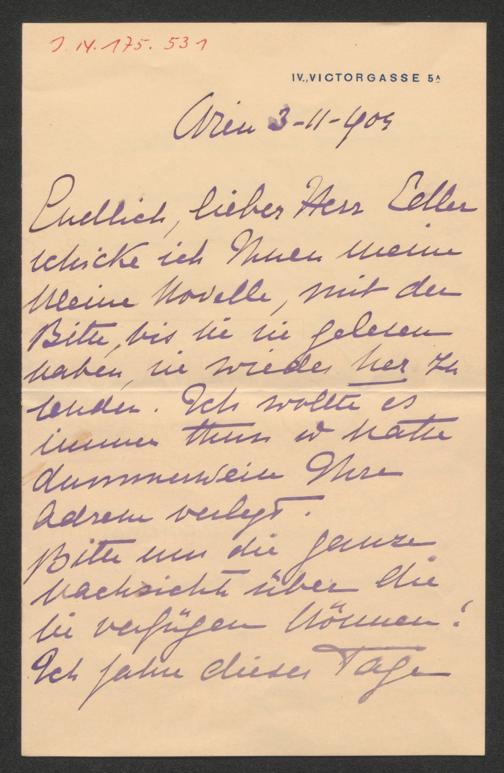 J. N. 175.531
IV., VICTORGASSE 5A
Wien 3-11-909
Endlich, lieber Herr Edler
schicke ich Ihnen meine
kleine Novelle, mit der
Bitte, bis Sie sie gelesen
haben, sie wieder her zu
senden. Ich wollte es
immer thun u hatte
dummerweise Ihre
Adresse verlegt.
Bitte um die ganze
Nachsicht über die
Sie verfügen können!
Ich fahre dieser Tage